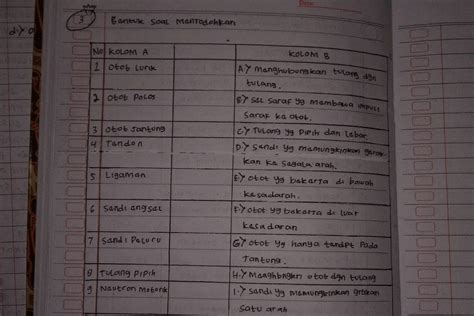 3 Bentuk Soal Mantodohkan
No KOLOM A KOLOM B
1 Otot Lurik A) menghubungkan tulang dgn
tulang.
2 Otot Polos B) Sel saraf yg membawa impuls
Saraf ke otot.
3 Otot Jantung C) Tulang yg Pipih dan Lebar.
4 Tandon D) Sandi yg memungkinkan gerak-
kan ke segala arah.
5 Ligaman E) otot yg bekerja di bawah
kesadarah.
6 Sandi angsal F) otot yg bekerja di luar
kesadaran
7 Sandi Paluru G) otot yg hanya tardpt Pada
Jantung.
8 Tulang Pipih H) Manghbngkn otot dgn tulang
9 Nautron Motorik I) Sandi yg mamungkinkan grakan
satu arah